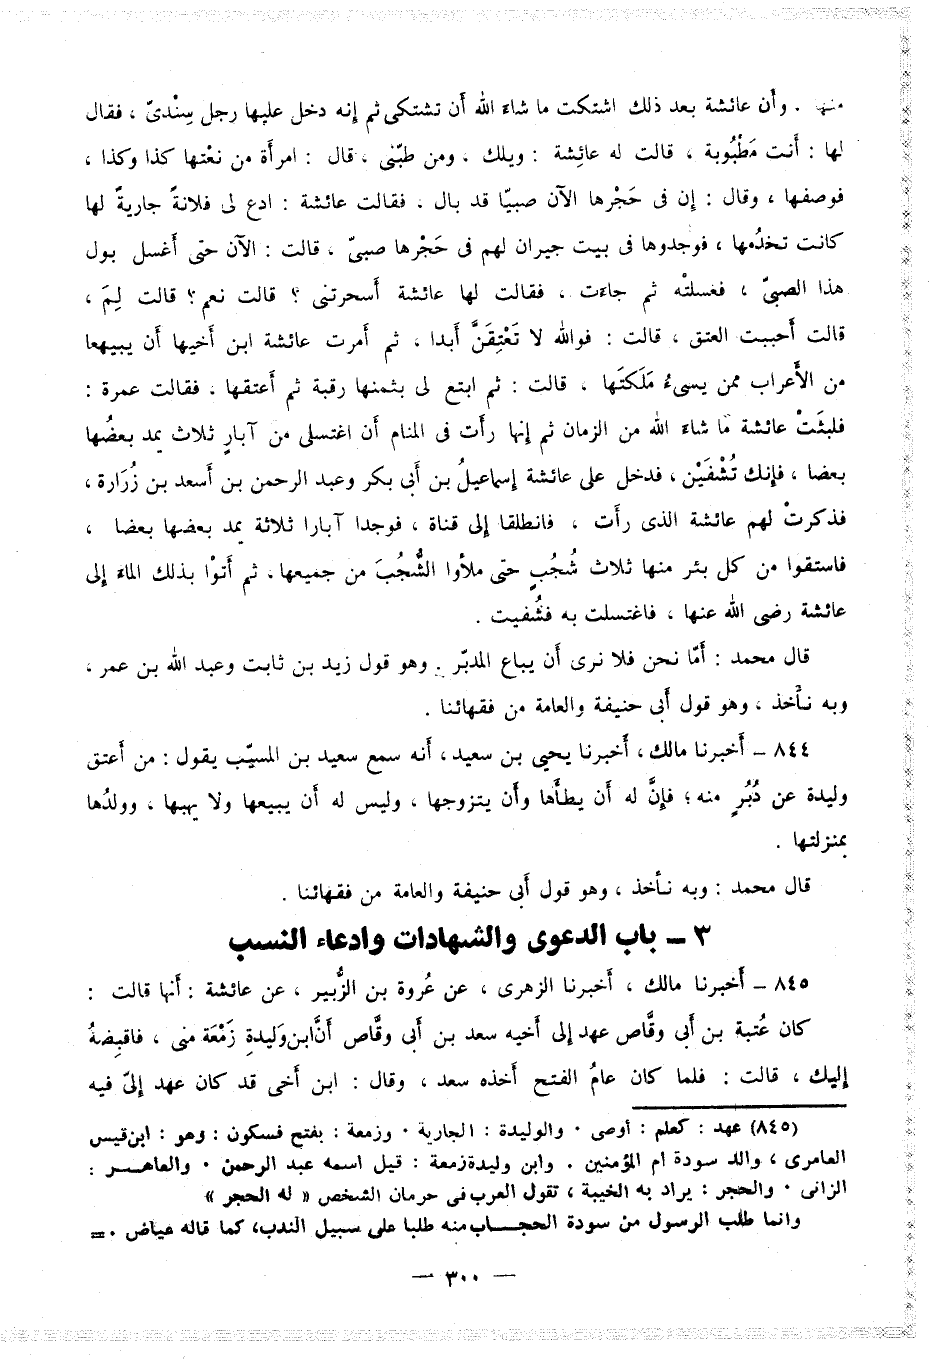 منها . وأن عائشة بعد ذلك اشتكت ما شاء الله أن تشتكى ثم إنه دخل عليها رجل سِنْدىّ ، فقال
لها : أنت مَطْبُوبة ، قالت له عائِشة : ويلك ، ومن طبّنى ، قال : امرأة من نعْتها كذا وكذا ،
فوصفها ، وقال : إن فى حَجْرها الآن صبيّا قد بال . فقالت عائشة : ادع لى فلانةً جاريةً لها
كانت تخدُمها ، فوجدوها فى بيت جيران لهم فى حَجْرها صبىّ ، قالت : الآن حتى أغسل بول
هذا الصبىّ ، فغسلتْه ثم جاءت ، فقالت لها عائشة أسحرتنى ؟ قالت نعم ؟ قالت لِمَ ،
قالت أحببت العتق ، قالت : فوالله لا تَعْتِقَنَّ أبدا ، ثم أمرت عائشة ابن أخيها أن يبيهعا
من الأعراب ممن يسىءُ مَلَكتَها ، قالت : ثم ابتع لى بثمنها رقبة ثم أعتقها . فقالت عمرة :
فلبثَتْ عائشة مَا شاء الله من الزمان ثم إنها رأت فى المنام أن اغتسلى من آبارٍ ثلاث يمد بعضُها
بعضا ، فإنك تُشْفَيْن ، فدخل على عائشة إسماعيلُ بن أبى بكر وعبد الرحمن بن أسعد بن زُرَارة ،
فذكرتْ لهم عائشة الذى رأت ، فانطلقا إلى قناة ، فوجدا آبارا ثلاثة يمد بعضها بعضا ،
فاستقوا من كل بئر منها ثلاث شُجُبٍ حتى ملأوا الشُّجُبَ من جميعها . ثم أتوْا بذلك الماء إلى
عائشة رضى الله عنها ، فاغتسلت به فشُفيت .
قال محمد : أمّا نحن فلا نرى أن يباع المدبّر . وهو قول زيد بن ثابت وعبد الله بن عمر ،
وبه نأخذ ، وهو قول أبى حنيفة والعامة من فقهائنا .
٨٤٤ – أخبرنا مالك ، أخبرنا يحيى بن سعيد ، أنه سمع سعيد بن المسيّب يقول : من أعتق
وليدة عن دُبُرٍ منه ؛ فإنَّ له أن يطأها وأن يتزوجها ، وليس له أن يبيعها ولا يهبها ، وولدُها
بمنزلتها .
قال محمد : وبه نأخذ ، وهو قول أبى حنيفة والعامة من فقهائنا .
٣ – باب الدعوى والشهادات وادعاء النسب
٨٤٥ – أخبرنا مالك ، أخبرنا الزهرى ، عن عُروة بن الزُّبير ، عن عائشة : أنها قالت :
كان عُتبة بن أبى وقَّاص عهد إلى أخيه سعد بن أبى وقَّاص أنَّ ابن وَليدةِ زَمْعَة منى ، فاقبِضهُ
إليك ، قالت : فلما كان عامُ الفتح أخذه سعد ، وقال : ابن أخى قد كان عهد إلىّ فيه
(٨٤٥) عهد : كعلم : أوصى ٠ والوليدة : الجارية ٠ وزمعة : بفتح فسكون : وهو : ابن قيس
العامرى ، والد سودة ام المؤمنين . وابن وليدة زمعة : قيل اسمه عبد الرحمن ٠ والعاهر :
الزانى ٠ والحجر : يراد به الخيبة ، تقول العرب فى حرمان الشخص « له الحجر »
وانما طلب الرسول من سودة الحجاب منه طلبا على سبيل الندب، كما قاله عياض ٠ =
— ٣٠٠ —